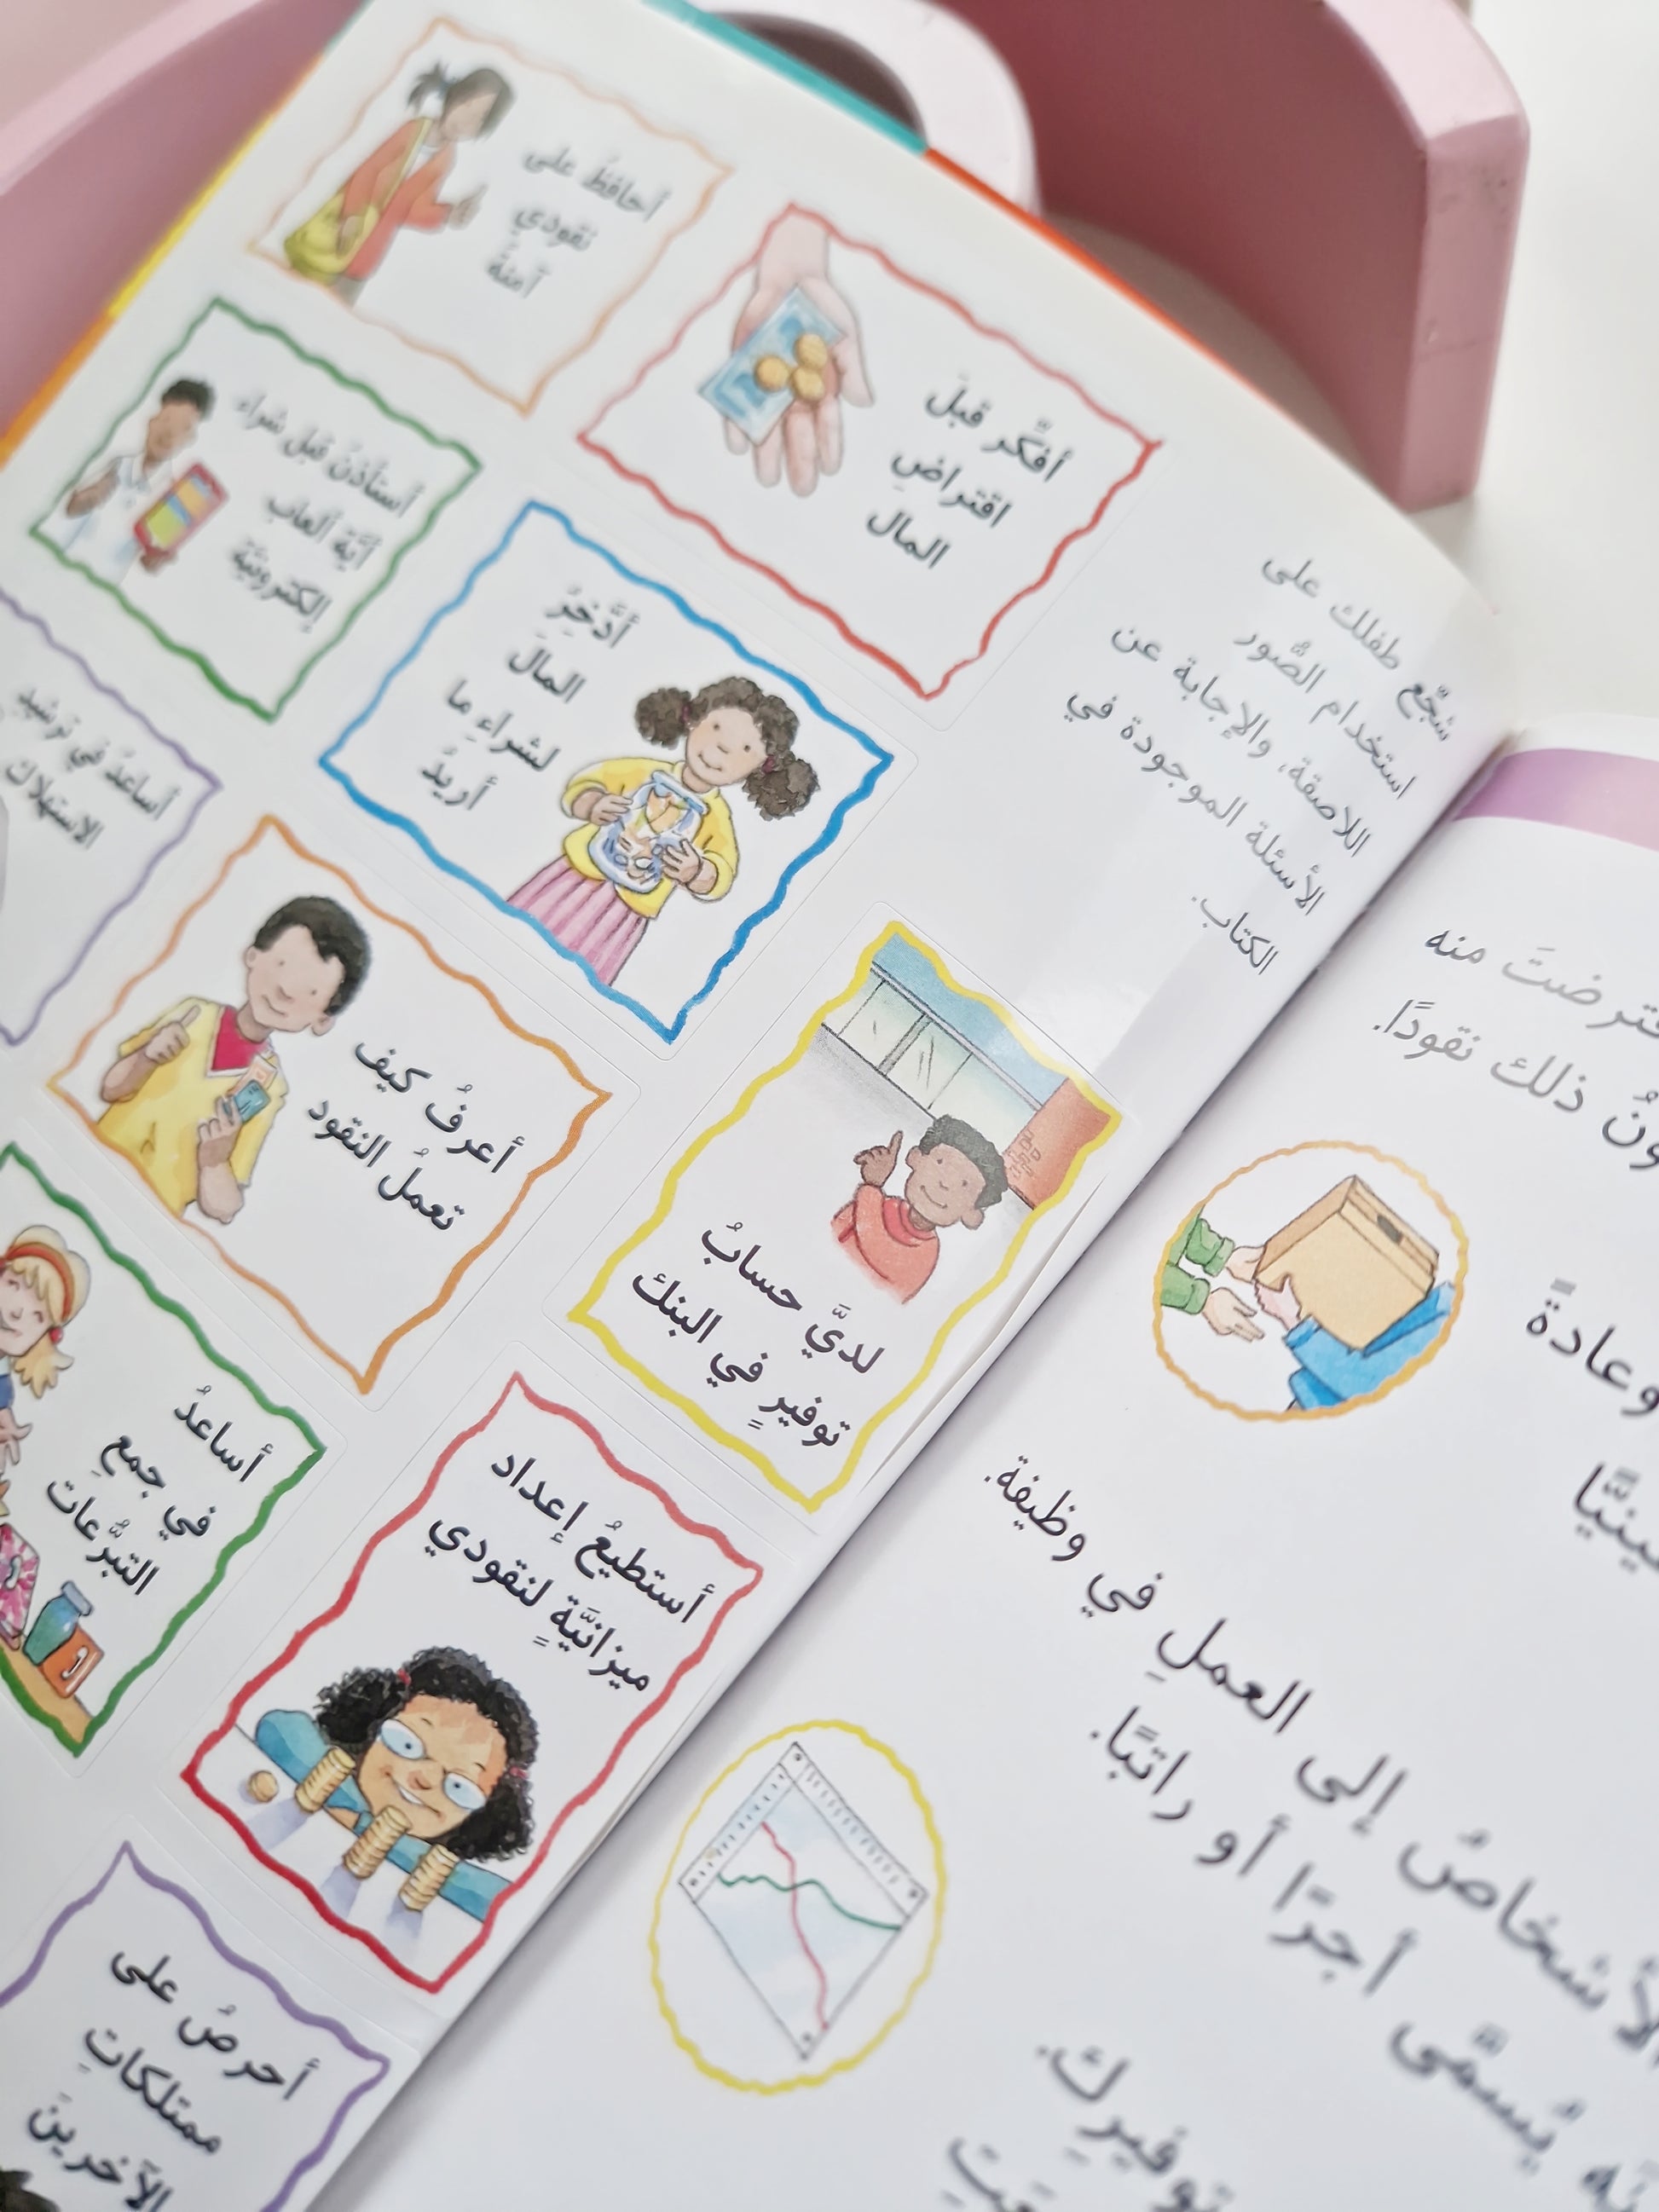 شجّع طفلك على
استخدام الصُّور
اللاصقة، والإجابة عن
الأسئلة الموجودة في
الكتاب.
أحافظُ على
نقودي
آمنةً
أفكّر قبلَ
اقتراضِ
المال
أستأذنُ قبل شراء
أيَّة ألعاب
إلكترونيَّة
أدَّخِرُ
المالَ
لشراءِ ما
أريدُ
أساعدُ في ترشيدِ
الاستهلاك
أعرفُ كيف
تعملُ النقود
لديَّ حسابُ
توفيرٍ في البنك
أساعدُ
في جمعِ
التبرُّعات
أستطيعُ إعداد
ميزانيَّةٍ لنقودي
أحرصُ على
ممتلكاتِ
الآخرينَ
منه
ذلك نقودًا.
وعادةً
إلى العملِ في وظيفة.
يُسمَّى أجرًا أو راتبًا.
توفيرِك.